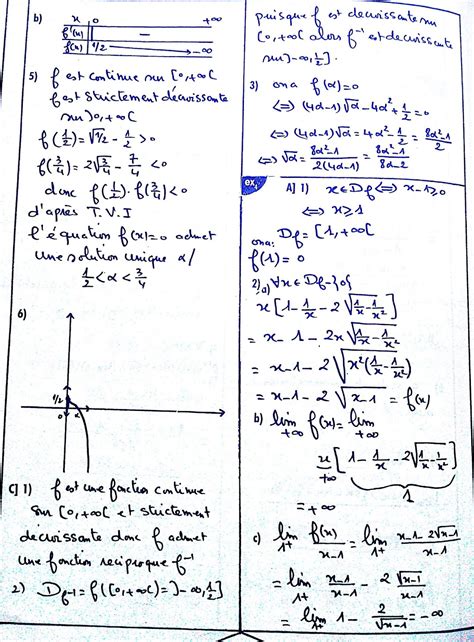 b) x | 0 +∞
f'(x) | −
f(x) | 1/2 → -∞
5) f est continue sur [0,+∞[
f est strictement décroissante
sur ]0,+∞[
f(1/2) = √1/2 - 1/2 > 0
f(3/4) = 2√3/4 - 7/4 < 0
donc f(1/2).f(3/4) < 0
d'après T.V.I
l'équation f(x)=0 admet
une solution unique α/
1/2 < α < 3/4
6)
1/2
0 α
C] 1) f est une fonction continue
sur [0,+∞[ et strictement
décroissante donc f admet
une fonction reciproque f⁻¹
2) D_f⁻¹ = f([0,+∞[) = ]-∞,1/2]
puisque f est decroissante sur
[0,+∞[ alors f⁻¹ est decroissante
sur ]-∞,1/2].
3) on a f(α)=0
⇔ (4α-1)√α - 4α² + 1/2 = 0
⇔ (4α-1)√α = 4α² - 1/2 = 8α²-1/2
⇔ √α = 8α²-1/2(4α-1) = 8α²-1/8α-2
ex1 A] 1) x∈Df ⇔ x-1≥0
⇔ x≥1
Df = [1,+∞[
on a:
f(1) = 0
2) a) ∀x∈Df-{0}
x[1 - 1/x - 2√1/x - 1/x²]
= x - 1 - 2x√1/x - 1/x²
= x-1-2√x²(1/x - 1/x²)
= x-1-2√x-1 = f(x)
b) lim +∞ f(x) = lim +∞
x[1 - 1/x - 2√1/x - 1/x²]
+∞ 1
= +∞
c) lim 1⁺ f(x)/x-1 = lim 1⁺ x-1-2√x-1/x-1
= lim 1⁺ x-1/x-1 - 2√x-1/x-1
= lim 1⁺ 1 - 2/√x-1 = -∞